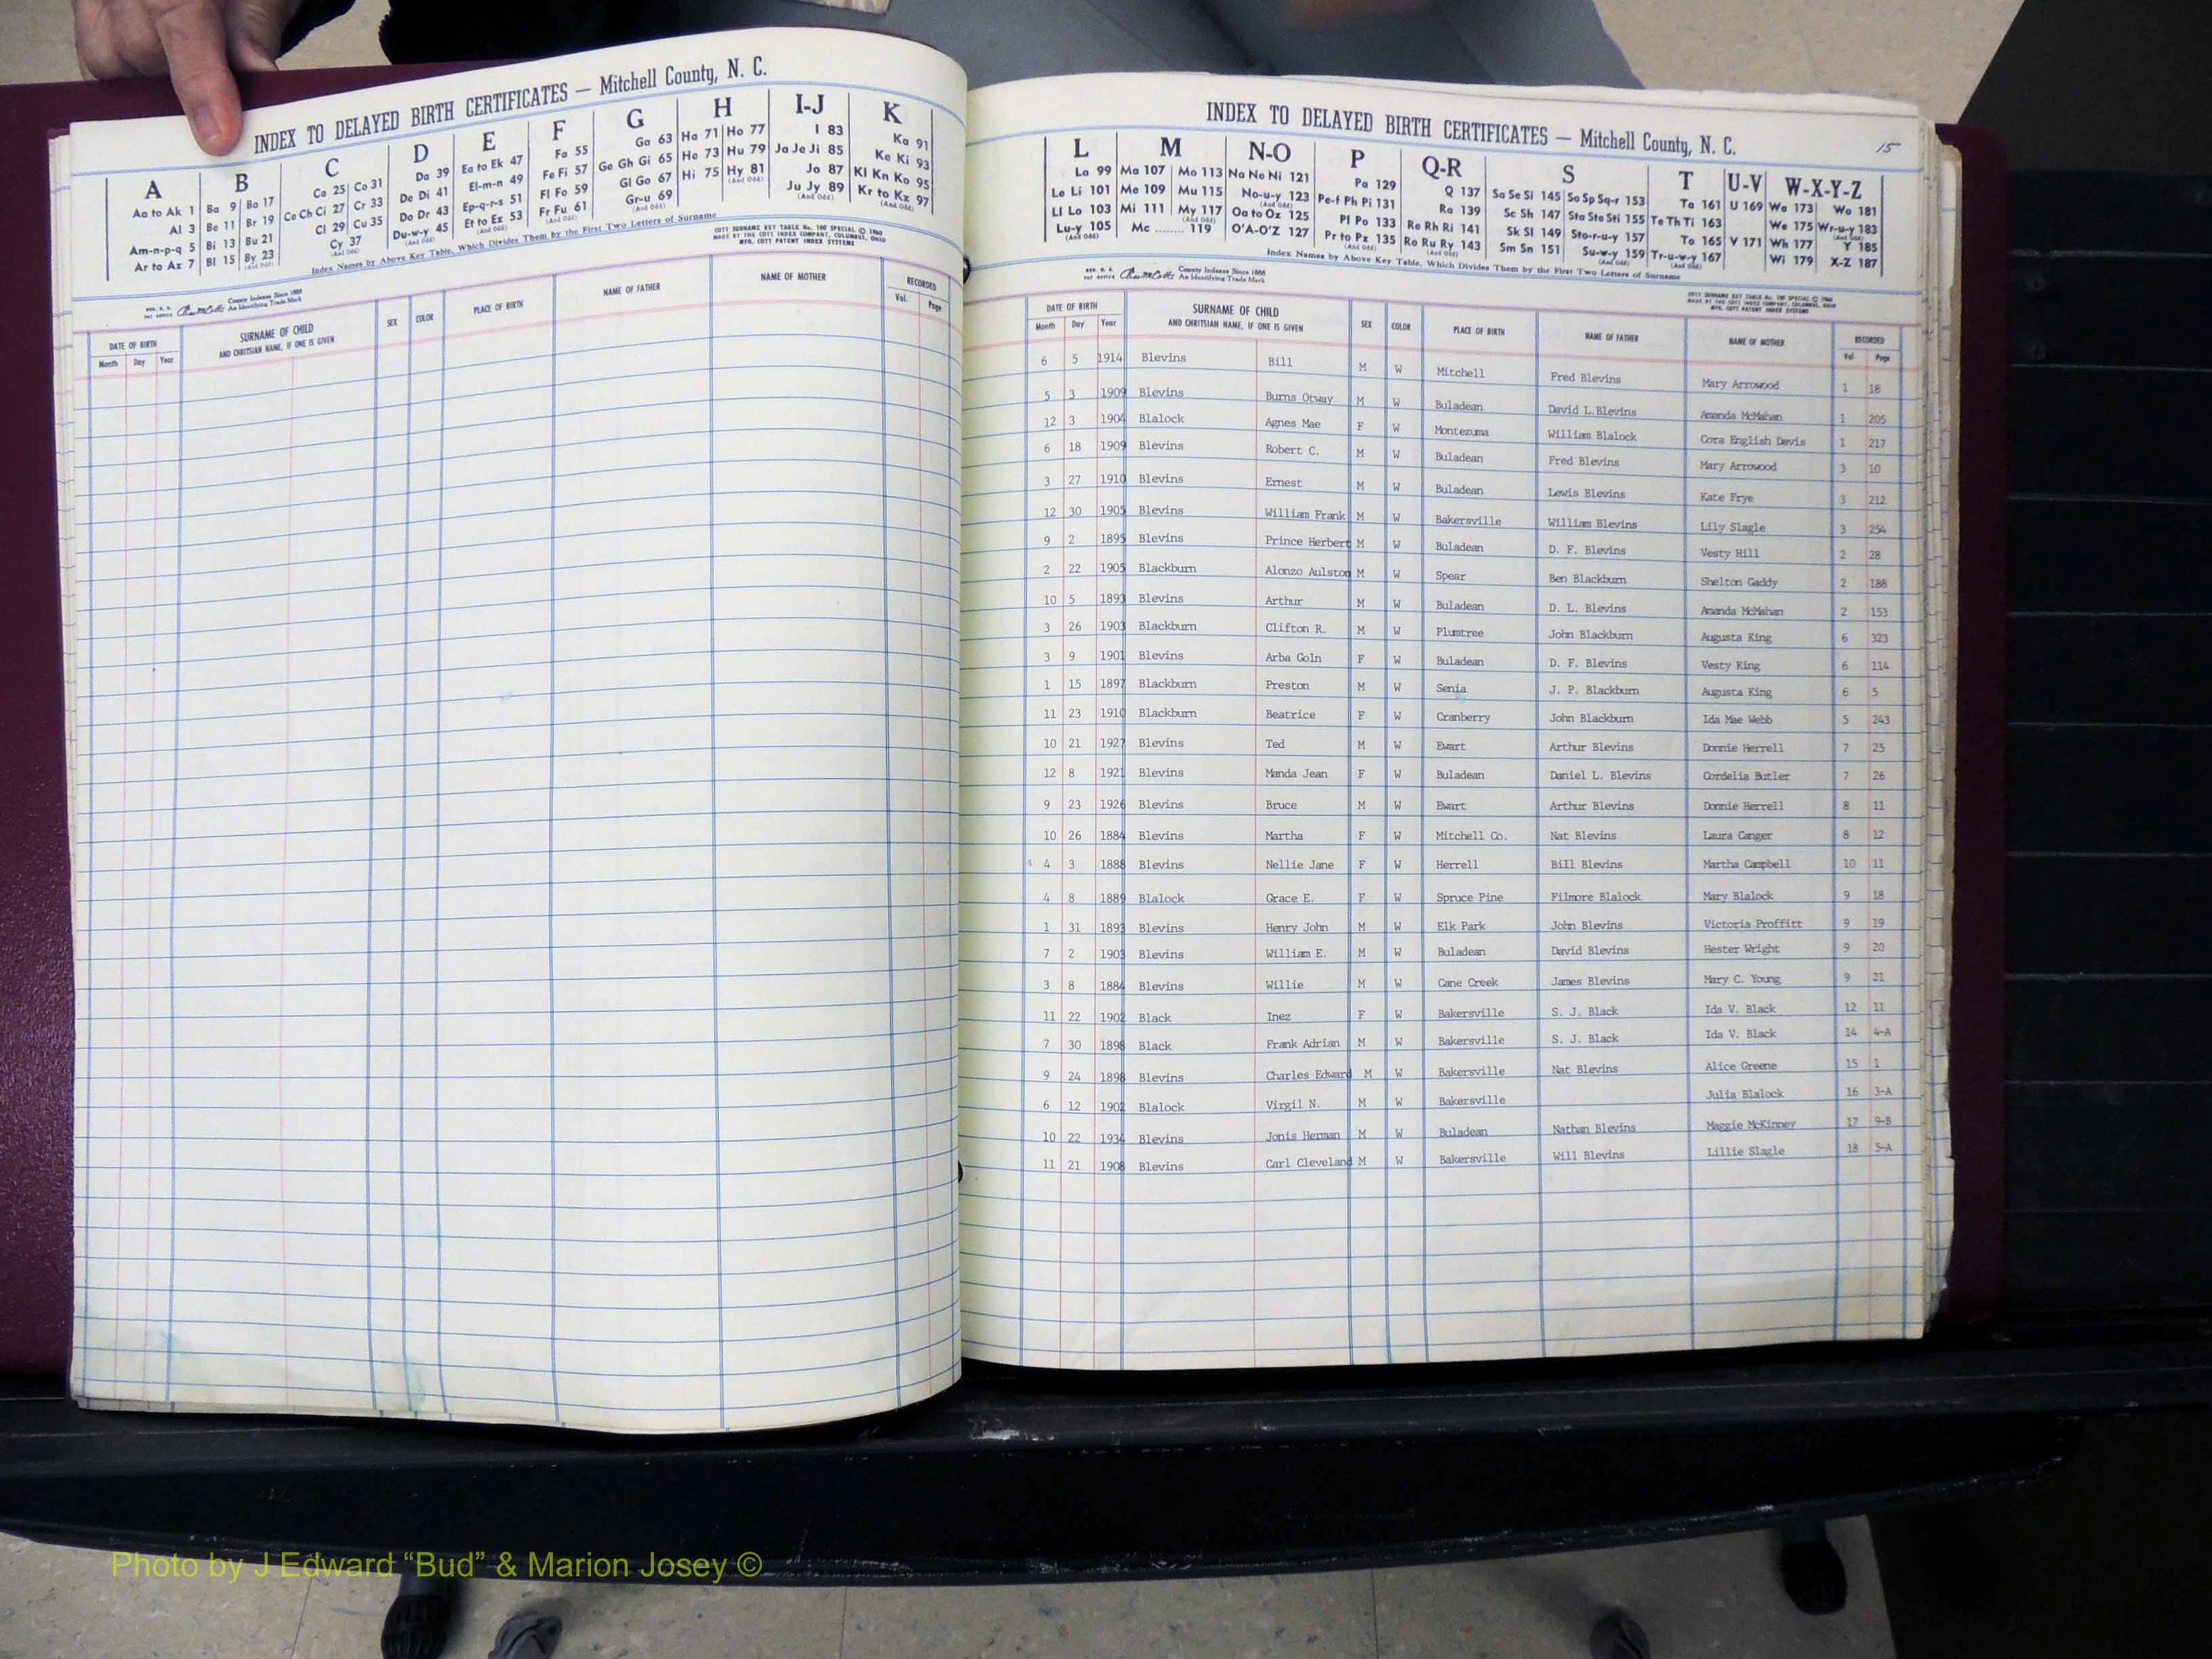 INDEX TO DELAYED BIRTH CERTIFICATES — Mitchell County, N. C.
A B C D E F G H I-J K
Aa to Ak 1 Ba 9 Bo 17 Ca 25 Co 31 Da 39 Ea to Ek 47 Fa 55 Ga 63 Ha 71 Ho 77 I 83 Ka 91
Al 3 Be 11 Br 19 Ce Ch Ci 27 Cr 33 De Di 41 El-m-n 49 Fe Fi 57 Ge Gh Gi 65 He 73 Hu 79 Ja Je Ji 85 Ke Ki 93
Am-n-p-q 5 Bi 13 Bu 21 Cl 29 Cu 35 Do Dr 43 Ep-q-r-s 51 Fl Fo 59 Gl Go 67 Hi 75 Hy 81 Jo 87 Kl Kn Ko 95
Ar to Az 7 Bl 15 By 23 Cy 37 Du-w-y 45 Et to Ez 53 Fr Fu 61 Gr-u 69 Ju Jy 89 Kr to Kz 97
Index Names by Above Key Table, Which Divides Them by the First Two Letters of Surname
COTT SURNAME KEY TABLE No. 100 SPECIAL © 1960
MADE BY THE COTT INDEX COMPANY, COLUMBUS, OHIO
MFG. COTT PATENT INDEX SYSTEMS
County Indexes Since 1888
An Identifying Trade Mark
DATE OF BIRTH SURNAME OF CHILD SEX COLOR PLACE OF BIRTH NAME OF FATHER NAME OF MOTHER RECORDED
Month Day Year AND CHRITSIAN NAME, IF ONE IS GIVEN Vol. Page
INDEX TO DELAYED BIRTH CERTIFICATES — Mitchell County, N. C. 15
L M N-O P Q-R S T U-V W-X-Y-Z
La 99 Ma 107 Mo 113 Na Ne Ni 121 Pa 129 Q 137 Sa Se Si 145 So Sp Sq-r 153 Ta 161 U 169 Wa 173 Wo 181
Le Li 101 Me 109 Mu 115 No-u-y 123 Pe-f Ph Pi 131 Ra 139 Sc Sh 147 Sta Ste Sti 155 Te Th Ti 163 We 175 Wr-u-y 183
Ll Lo 103 Mi 111 My 117 Oa to Oz 125 Pl Po 133 Re Rh Ri 141 Sk Sl 149 Sto-r-u-y 157 To 165 V 171 Wh 177 Y 185
Lu-y 105 Mc ........ 119 O'A-O'Z 127 Pr to Pz 135 Ro Ru Ry 143 Sm Sn 151 Su-w-y 159 Tr-u-w-y 167 Wi 179 X-Z 187
Index Names by Above Key Table, Which Divides Them by the First Two Letters of Surname
County Indexes Since 1888
An Identifying Trade Mark
COTT SURNAME KEY TABLE No. 100 SPECIAL © 1960
MADE BY THE COTT INDEX COMPANY, COLUMBUS, OHIO
MFG. COTT PATENT INDEX SYSTEMS
DATE OF BIRTH SURNAME OF CHILD SEX COLOR PLACE OF BIRTH NAME OF FATHER NAME OF MOTHER RECORDED
Month Day Year AND CHRITSIAN NAME, IF ONE IS GIVEN Vol. Page
6 5 1914 Blevins Bill M W Mitchell Fred Blevins Mary Arrowood 1 18
5 3 1909 Blevins Burns Otway M W Buladean David L. Blevins Amanda McMahan 1 205
12 3 1904 Blalock Agnes Mae F W Montezuma William Blalock Cora English Davis 1 217
6 18 1909 Blevins Robert C. M W Buladean Fred Blevins Mary Arrowood 3 10
3 27 1910 Blevins Ernest M W Buladean Lewis Blevins Kate Frye 3 212
12 30 1905 Blevins William Frank M W Bakersville William Blevins Lily Slagle 3 254
9 2 1895 Blevins Prince Herbert M W Buladean D. F. Blevins Vesty Hill 2 28
2 22 1905 Blackburn Alonzo Aulston M W Spear Ben Blackburn Shelton Gaddy 2 188
10 5 1893 Blevins Arthur M W Buladean D. L. Blevins Amanda McMahan 2 153
3 26 1903 Blackburn Clifton R. M W Plumtree John Blackburn Augusta King 6 323
3 9 1901 Blevins Arba Goln F W Buladean D. F. Blevins Vesty King 6 114
1 15 1897 Blackburn Preston M W Senia J. P. Blackburn Augusta King 6 5
11 23 1910 Blackburn Beatrice F W Cranberry John Blackburn Ida Mae Webb 5 243
10 21 1927 Blevins Ted M W Ewart Arthur Blevins Donnie Herrell 7 25
12 8 1921 Blevins Manda Jean F W Buladean Daniel L. Blevins Cordelia Butler 7 26
9 23 1926 Blevins Bruce M W Ewart Arthur Blevins Donnie Herrell 8 11
10 26 1884 Blevins Martha F W Mitchell Co. Nat Blevins Laura Canger 8 12
4 3 1888 Blevins Nellie Jane F W Herrell Bill Blevins Martha Campbell 10 11
4 8 1889 Blalock Grace E. F W Spruce Pine Filmore Blalock Mary Blalock 9 18
1 31 1893 Blevins Henry John M W Elk Park John Blevins Victoria Proffitt 9 19
7 2 1903 Blevins William E. M W Buladean David Blevins Hester Wright 9 20
3 8 1884 Blevins Willie M W Cane Creek James Blevins Mary C. Young 9 21
11 22 1902 Black Inez F W Bakersville S. J. Black Ida V. Black 12 11
7 30 1898 Black Frank Adrian M W Bakersville S. J. Black Ida V. Black 14 4-A
9 24 1898 Blevins Charles Edward M W Bakersville Nat Blevins Alice Greene 15 1
6 12 1902 Blalock Virgil N. M W Bakersville Julia Blalock 16 3-A
10 22 1934 Blevins Jonis Herman M W Buladean Nathan Blevins Maggie McKinney 17 9-B
11 21 1908 Blevins Carl Cleveland M W Bakersville Will Blevins Lillie Slagle 18 5-A
Photo by J Edward “Bud” & Marion Josey ©